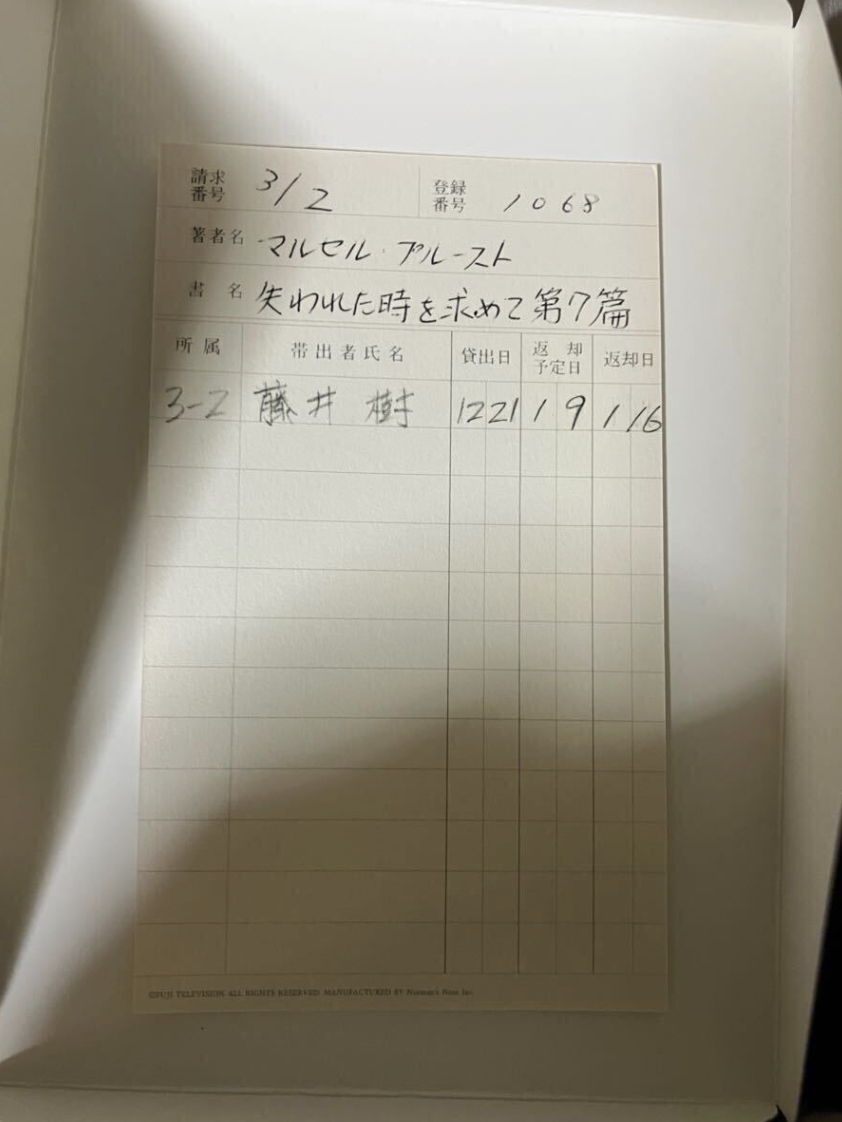 請求番号 3/2 登録番号 1068
著者名 マルセル・プルースト
書名 失われた時を求めて第7篇
所属 帯出者氏名 貸出日 返却予定日 返却日
3-2 藤井 樹 12 21 1 9 1 16
©FUJI TELEVISION ALL RIGHTS RESERVED MANUFACTURED BY Norman's Nose Inc.